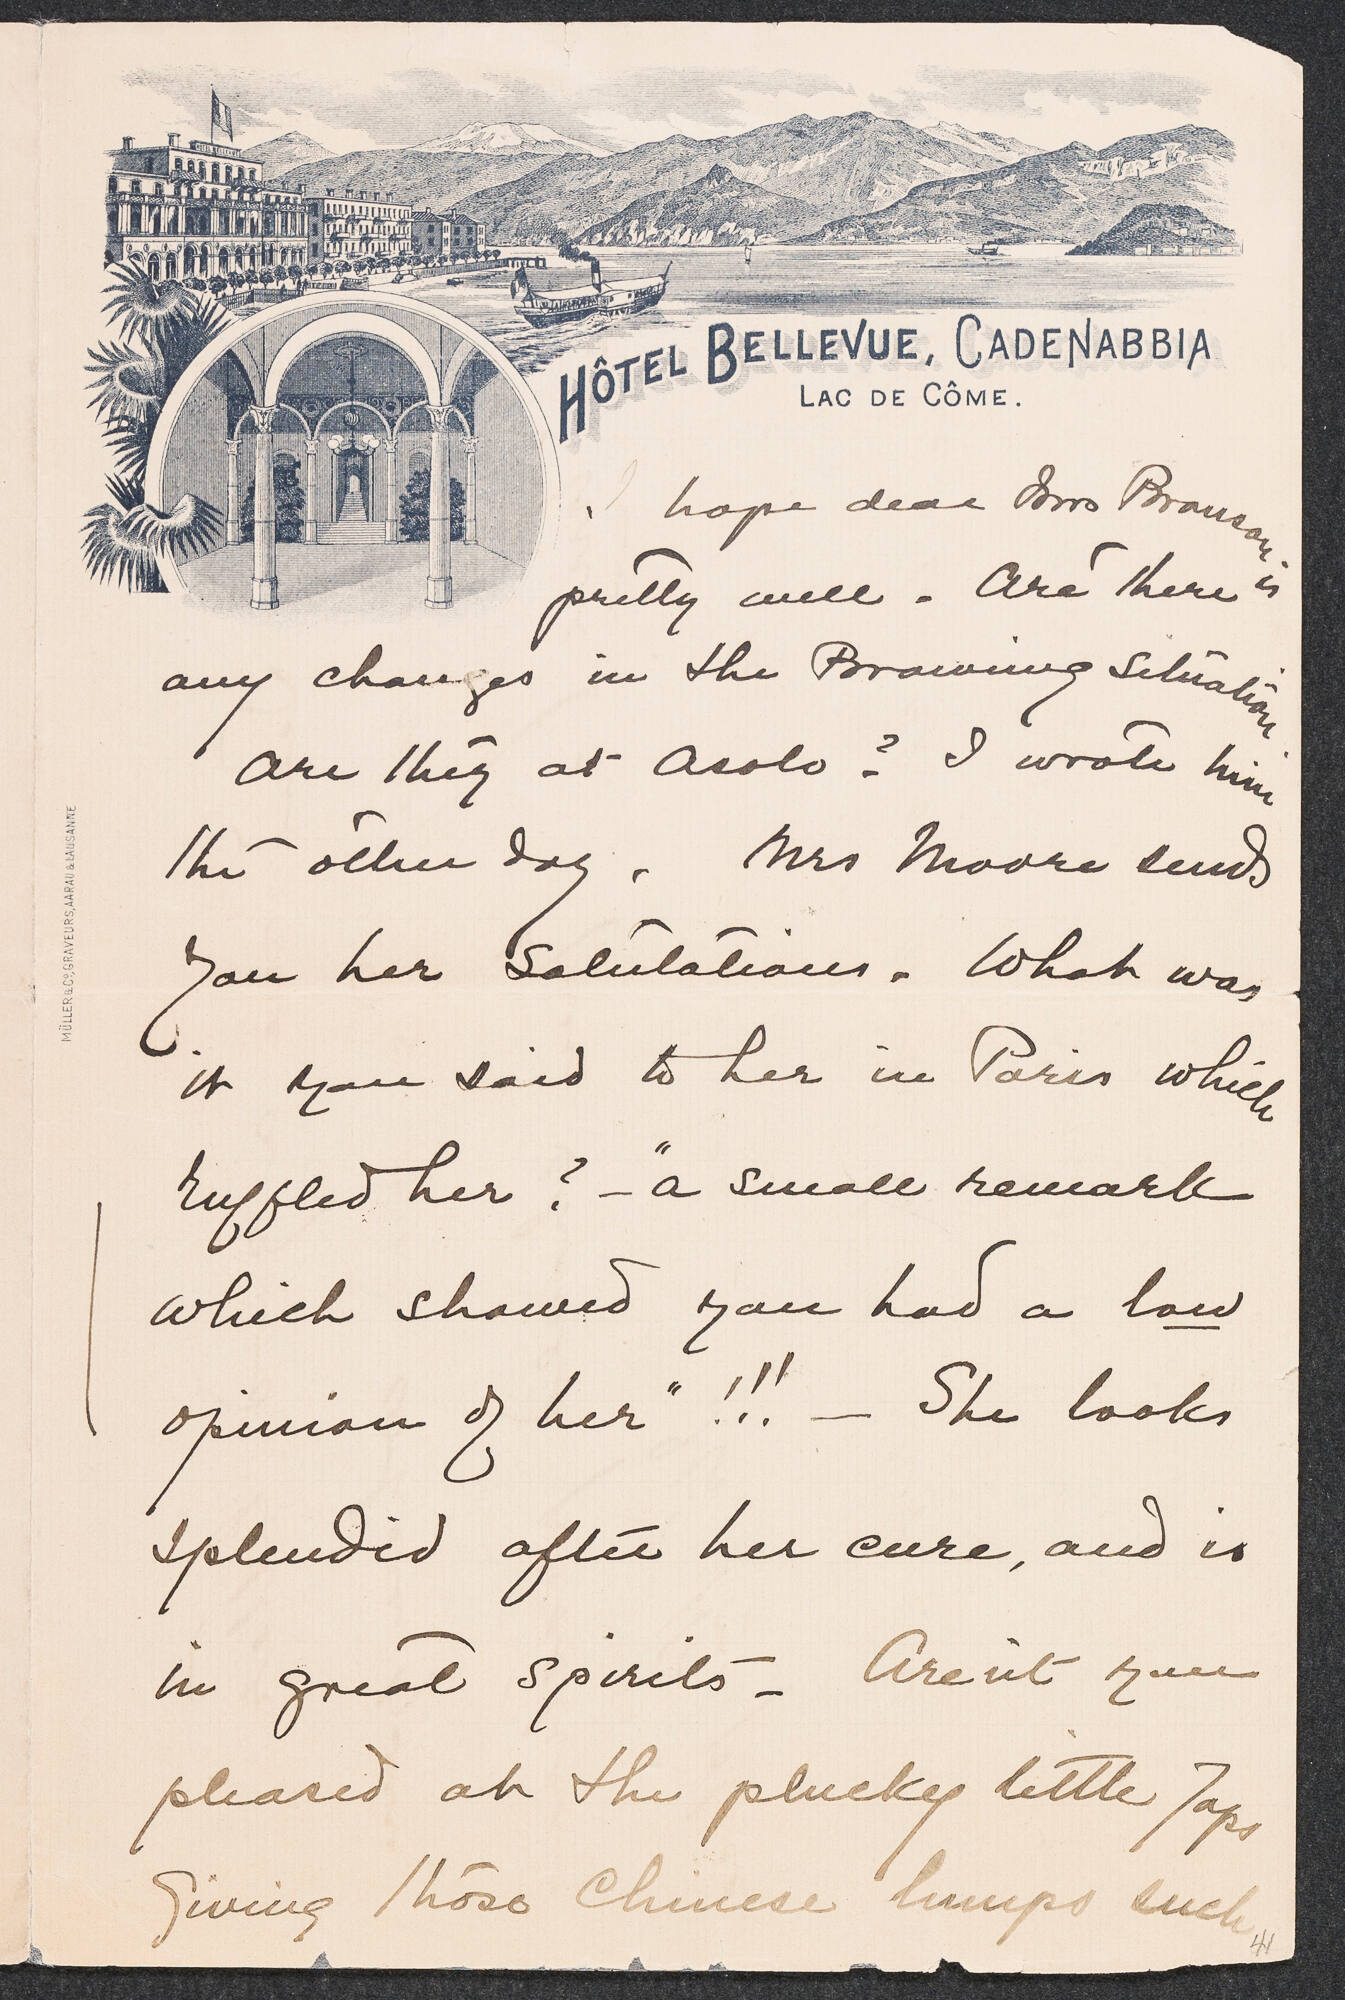 HÔTEL BELLEVUE
HÔTEL BELLEVUE, CADENABBIA
LAC DE CÔME.
MÜLLER & Co, GRAVEURS, AARAU & LAUSANNE
I hope dear Mrs Bronson is
pretty well. Are there
any changes in the Browning situation.
Are they at Asolo? I wrote him
the other day. Mrs Moore sends
you her salutations. What was
it you said to her in Paris which
ruffled her? – "a small remark
which showed you had a low
opinion of her" !!! – She looks
splendid after her cure, and is
in great spirits – Are'nt you
pleased at the plucky little Japs
giving those Chinese lumps such
41